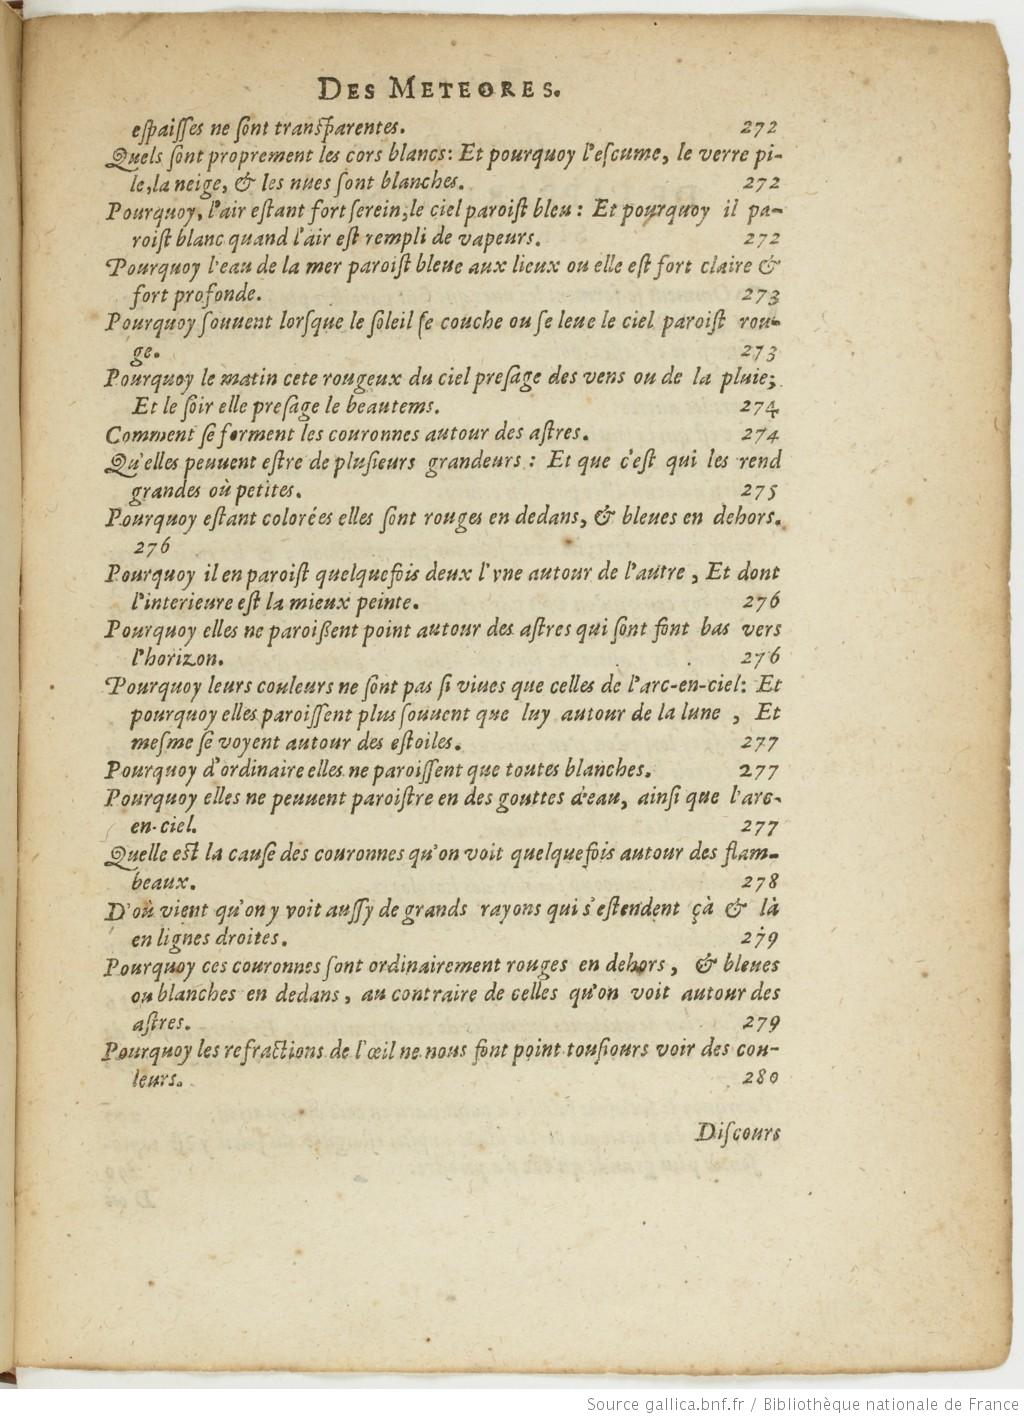 DES METEORES.
espaisses ne sont transparentes. 272
Quels sont proprement les cors blancs: Et pourquoy l'escume, le verre pi-
le, la neige, & les nues sont blanches. 272
Pourquoy, l'air estant fort serein, le ciel paroist bleu : Et pourquoy il pa-
roist blanc quand l'air est rempli de vapeurs. 272
Pourquoy l'eau de la mer paroist bleue aux lieux ou elle est fort claire &
fort profonde. 273
Pourquoy souuent lorsque le soleil se couche ou se leue le ciel paroist rou-
ge. 273
Pourquoy le matin cete rougeux du ciel presage des vens ou de la pluie;
Et le soir elle presage le beautems. 274
Comment se forment les couronnes autour des astres. 274
Qu'elles peuuent estre de plusieurs grandeurs : Et que c'est qui les rend
grandes où petites. 275
Pourquoy estant colorées elles sont rouges en dedans, & bleues en dehors.
276
Pourquoy il en paroist quelquefois deux l'vne autour de l'autre, Et dont
l'interieure est la mieux peinte. 276
Pourquoy elles ne paroißent point autour des astres qui sont font bas vers
l'horizon. 276
Pourquoy leurs couleurs ne sont pas si viues que celles de l'arc-en-ciel: Et
pourquoy elles paroissent plus souuent que luy autour de la lune, Et
mesme se voyent autour des estoiles. 277
Pourquoy d'ordinaire elles ne paroissent que toutes blanches. 277
Pourquoy elles ne peuuent paroistre en des gouttes d'eau, ainsi que l'arc-
en-ciel. 277
Quelle est la cause des couronnes qu'on voit quelquefois autour des flam-
beaux. 278
D'où vient qu'on y voit aussy de grands rayons qui s'estendent çà & là
en lignes droites. 279
Pourquoy ces couronnes sont ordinairement rouges en dehors, & bleues
ou blanches en dedans, au contraire de celles qu'on voit autour des
astres. 279
Pourquoy les refractions de l'œil ne nous font point tousiours voir des cou-
leurs. 280
Discours
Source gallica.bnf.fr / Bibliothèque nationale de France